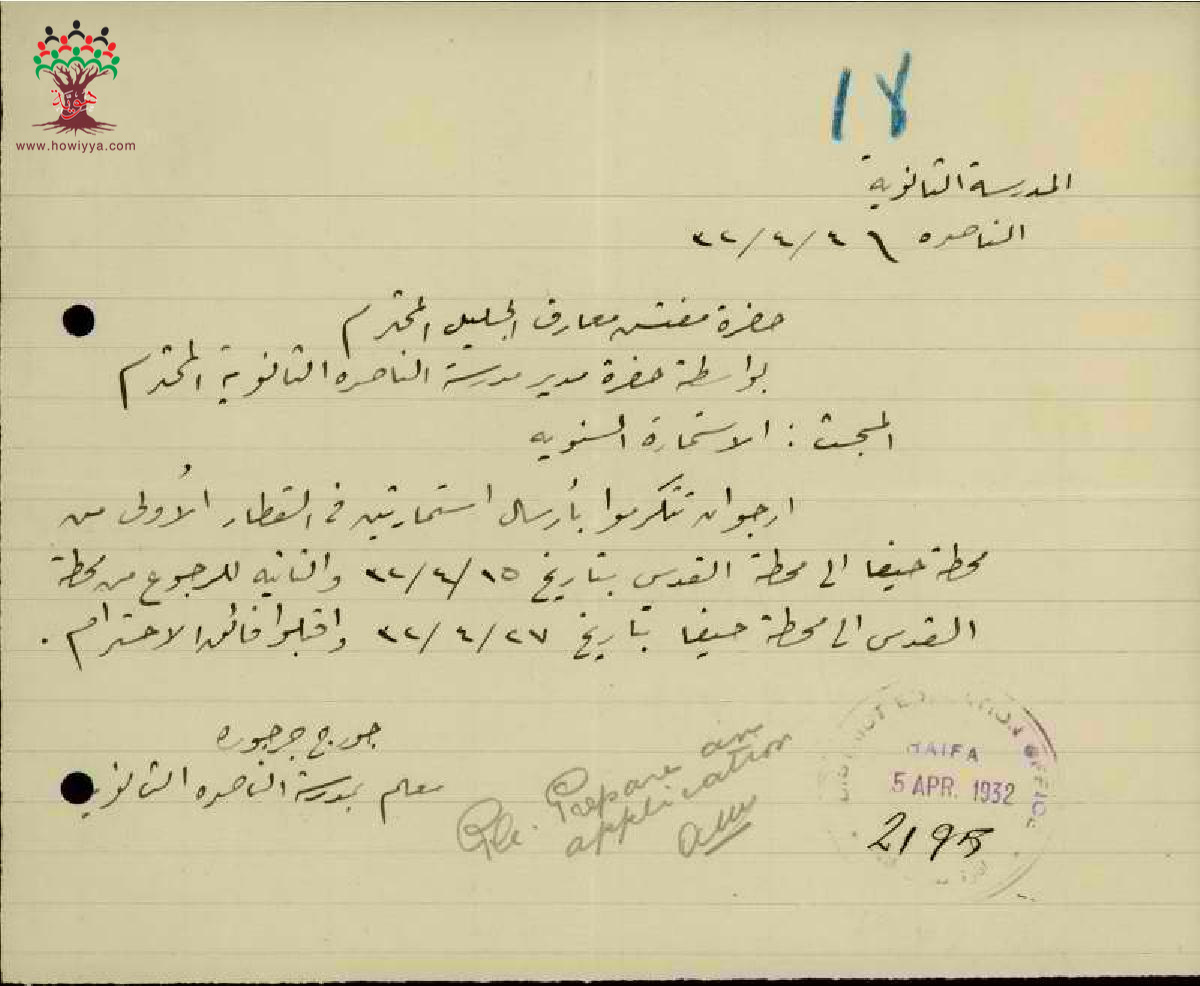 هوية
www.howiyya.com
١٧
المدرسة الثانوية
الناصره ٤/٤/٣٢
حضرة مفتش معارف الجليل المحترم
بواسطة حضرة مدير مدرسة الناصره الثانوية المحترم
المبحث : الاستمارة السنويه
ارجو ان تتكرموا بأرسال استمارتين في القطار الأولى من
محطة حيفا الى محطة القدس بتاريخ ١٥/٤/٣٢ والثانيه للرجوع من محطة
القدس الى محطة حيفا بتاريخ ٢٧/٤/٣٢ واقبلوا فائق الاحترام .
جورج جرجوره
معلم بمدرسة الناصره الثانويه
Prepare an
application
DISTRICT EDUCATION OFFICE
HAIFA
5 APR. 1932
2195